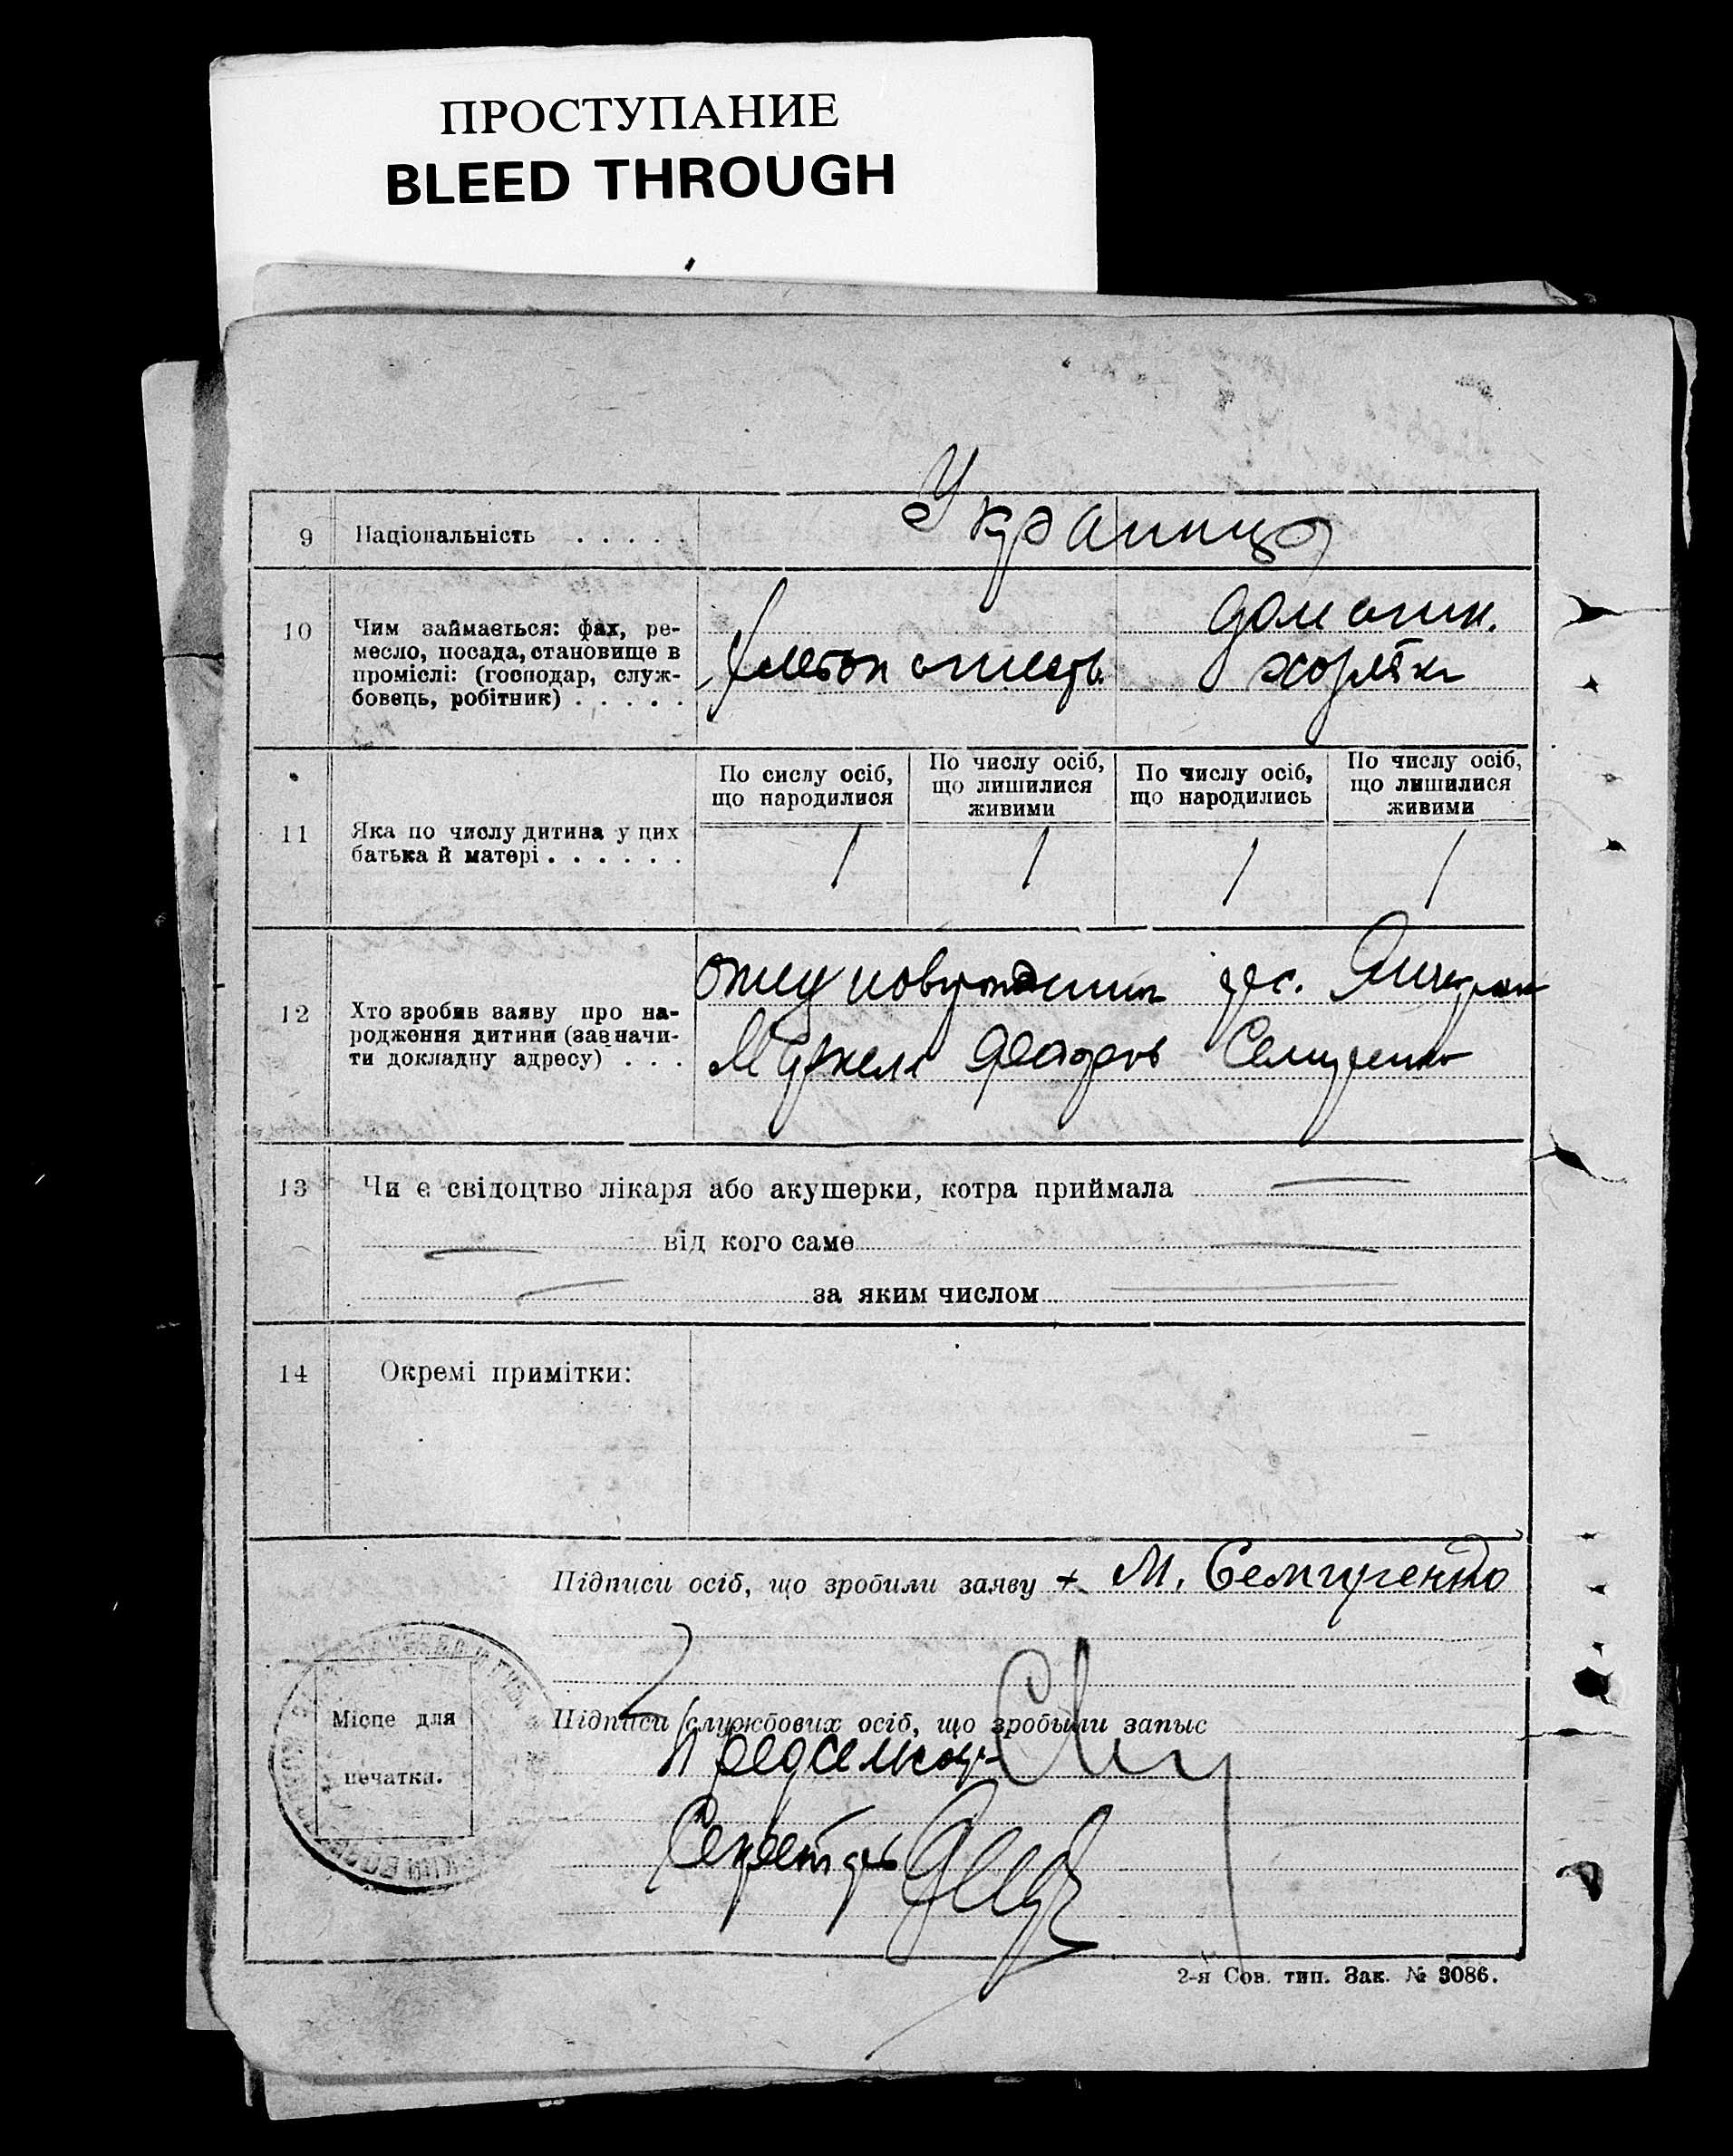 ПРОСТУПАНИЕ
BLEED THROUGH
9 Національність . . . . .
Украинцы
10 Чим займається: фах, ре-
месло, посада, становище в
проміслі: (господар, служ-
бовець, робітник) . . . . .
хлебопашець
домашн.
хозяйка
11 Яка по числу дитина у цих
батька й матері . . . . . .
По сислу осіб,
що народилися
По числу осіб,
що лишилися
живими
По числу осіб,
що народились
По числу осіб,
що лишилися
живими
1 1 1 1
12 Хто зробив заяву про на-
родження дитини (зазначи-
ти докладну адресу) . . .
отец новорожденного
13 Чи є свідоцтво лікаря або акушерки, котра приймала
від кого саме
за яким числом
14 Окремі примітки:
Підписи осіб, що зробили заяву + М.
Підписи службових осіб, що зробыли запыс
Місце для
печатки.
Предсельсов
Секретарь
2-я Сов. тип. Зак. № 3086.